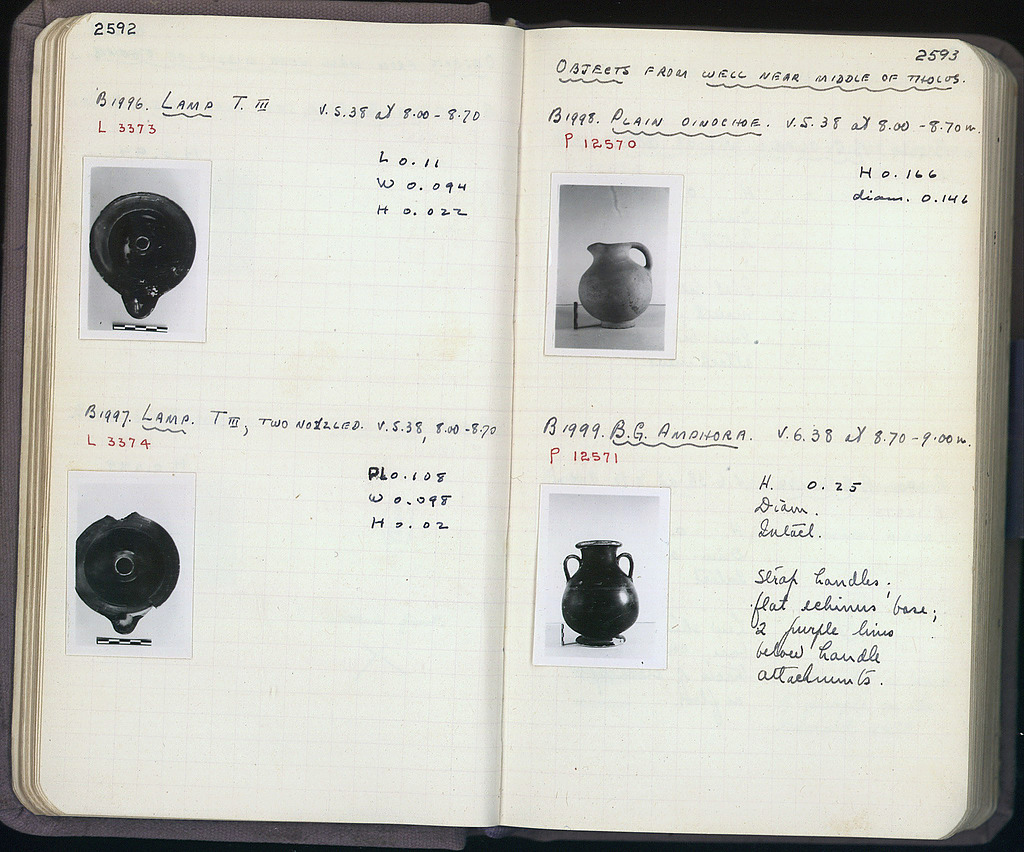 2592
B1996. LAMP T. III V.5.38 at 8.00 - 8.70
L 3373
L 0.11
W 0.094
H 0.022
B1997. LAMP. T III, TWO NOZZLED. V.5.38, 8.00-8.70
L 3374
PL 0.108
W 0.098
H 0.02
2593
OBJECTS FROM WELL NEAR MIDDLE OF THOLOS.
B1998. PLAIN OINOCHOE. V.5.38 at 8.00 - 8.70 m.
P 12570
H 0.166
diam. 0.146
B1999. B.G. AMPHORA. V.6.38 at 8.70 - 9.00 m.
P 12571
H. 0.25
Diam.
Intact.
Strap handles;
flat echinus base;
2 purple lines
below handle
attachments.